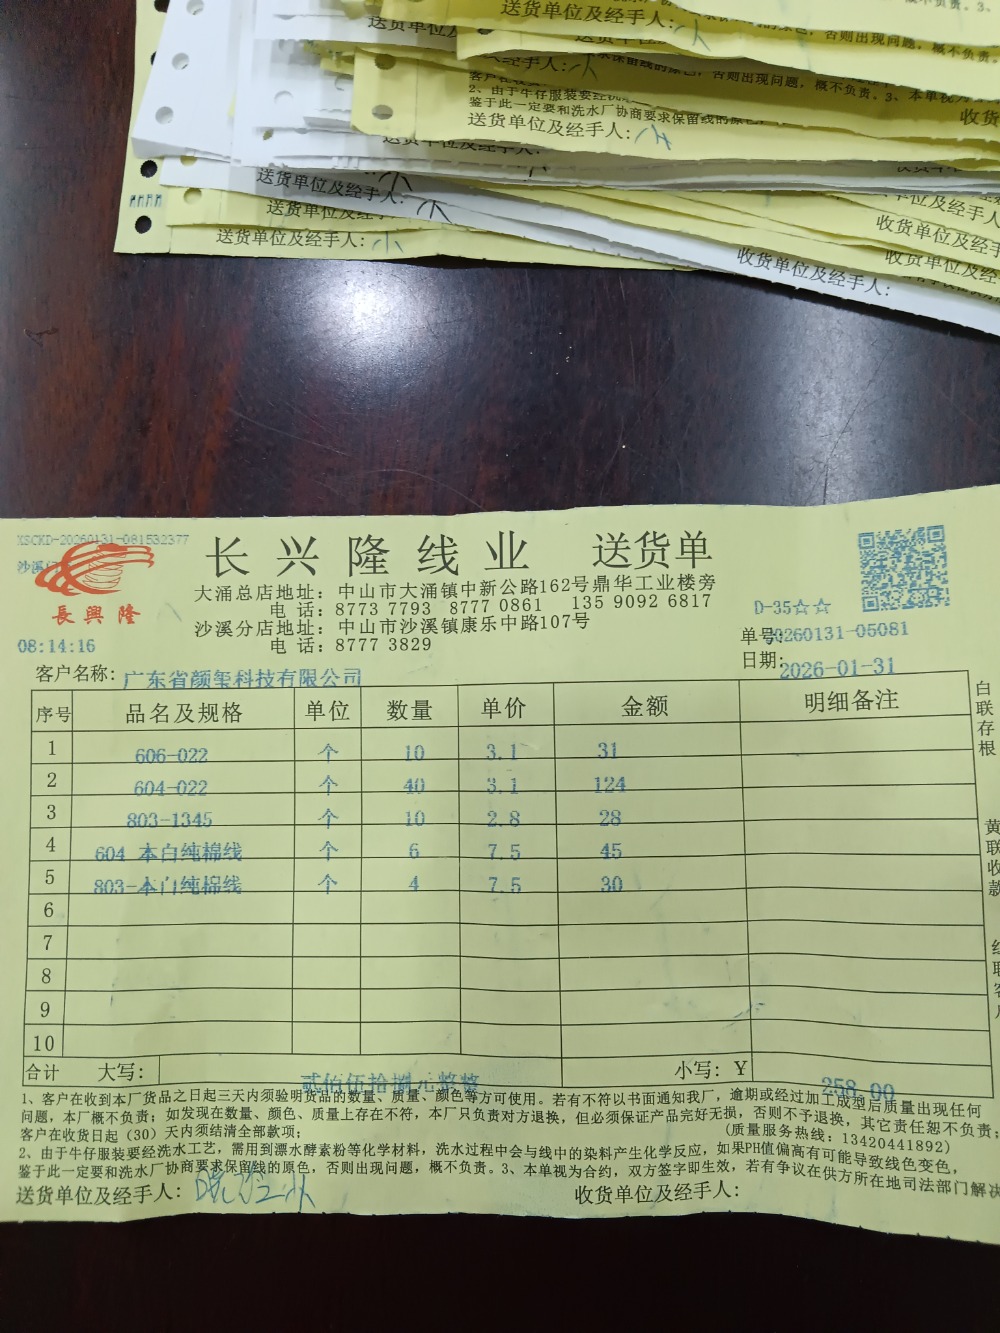 送货单位及经手人：小
否则出现问题，概不负责。3、
送货单位及经手人：
概不负责。
否则出现问题，概不负责。3、本单视为
客户在收
2、由于牛仔服装要经洗水
鉴于此一定要和洗水厂协商要求保留线的原色，
收货
送货单位及经手人：小
送货单位及经手人：
送货单位及经手人：小
送货单位及经手人：
收货单位及经手
送货单位及经手人：小
收货单位及经手人：
收货单位及经
XSCKD-20260131-081532377
沙溪
長興隆
长兴隆线业 送货单
大涌总店地址：中山市大涌镇中新公路162号鼎华工业楼旁
电话：8773 7793 8777 0861 135 9092 6817
沙溪分店地址：中山市沙溪镇康乐中路107号
电话：8777 3829
D-35☆☆
08:14:16
单号：20260131-05081
日期：2026-01-31
客户名称：广东省颜玺科技有限公司
序号 品名及规格 单位 数量 单价 金额 明细备注
1 606-022 个 10 3.1 31
2 604-022 个 40 3.1 124
3 803-1345 个 10 2.8 28
4 604 本白纯棉线 个 6 7.5 45
5 803-本白纯棉线 个 4 7.5 30
6
7
8
9
10
合计 大写： 贰佰伍拾捌元整整 小写：Y 258.00
白联存根
黄联收款
红联客户
1、客户在收到本厂货品之日起三天内须验明货品的数量、质量、颜色等方可使用。若有不符以书面通知我厂，逾期或经过加工成型后质量出现任何
问题，本厂概不负责；如发现在数量、颜色、质量上存在不符，本厂只负责对方退换，但必须保证产品完好无损，否则不予退换，其它责任恕不负责；
客户在收货日起（30）天内须结清全部款项； (质量服务热线：13420441892)
2、由于牛仔服装要经洗水工艺，需用到漂水酵素粉等化学材料，洗水过程中会与线中的染料产生化学反应，如果PH值偏高有可能导致线色变色，
鉴于此一定要和洗水厂协商要求保留线的原色，否则出现问题，概不负责。3、本单视为合约，双方签字即生效，若有争议在供方所在地司法部门解决
送货单位及经手人： 收货单位及经手人：